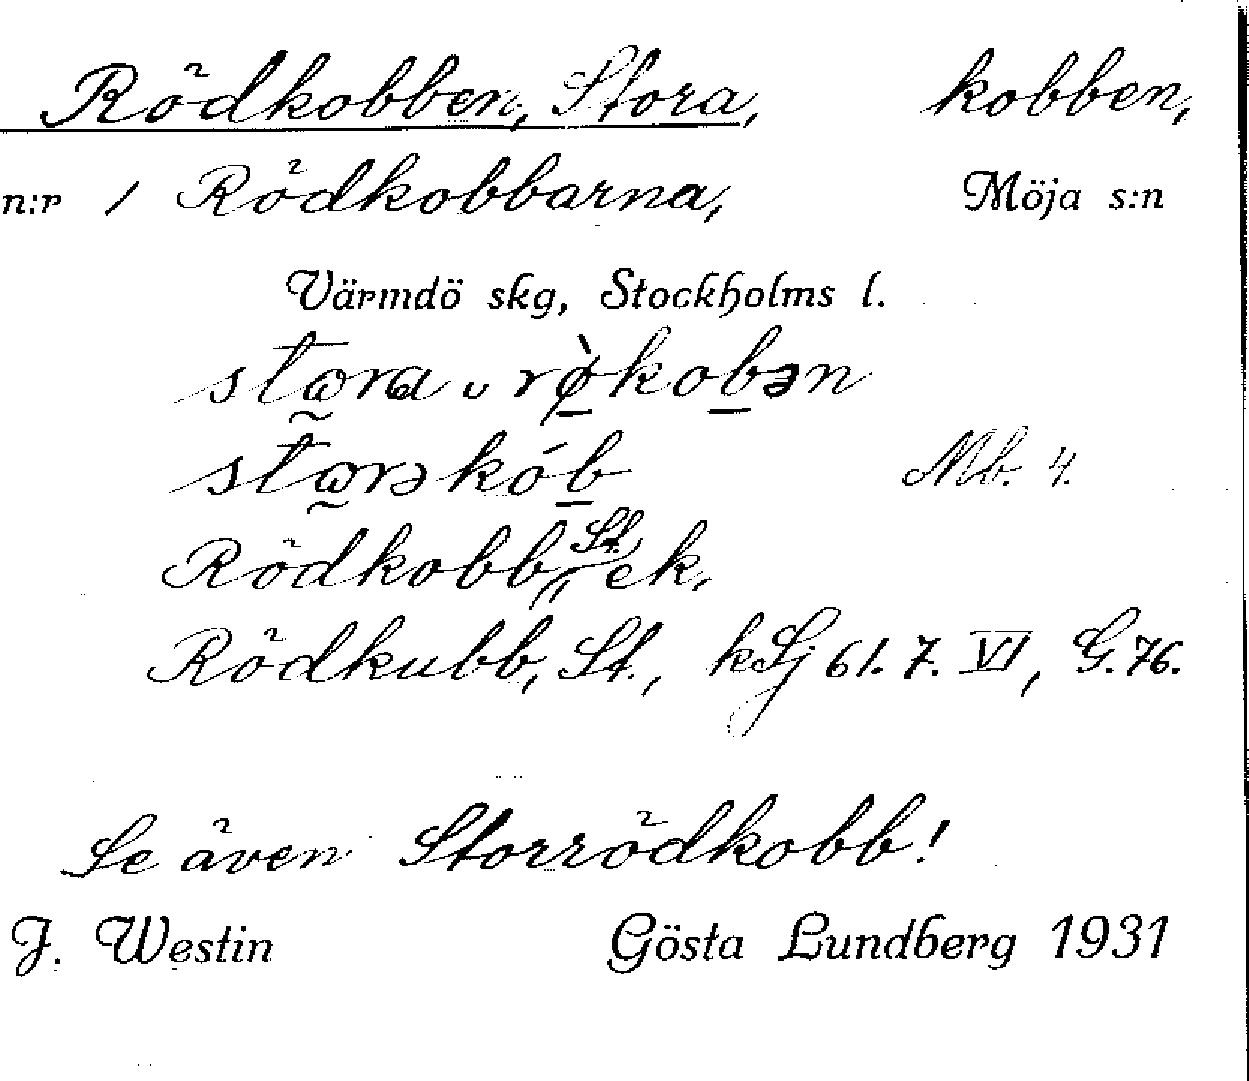 Rödkobben, Stora, kobben,
n:r 1 Rödkobbarna, Möja s:n
Värmdö skg, Stockholms l.
Mb. 4.
Rödkobb, St. ek.
Rödkubb, St., kSj 61. 7. VI, G. 76.
Se även Storrödkobb!
J. Westin Gösta Lundberg 1931